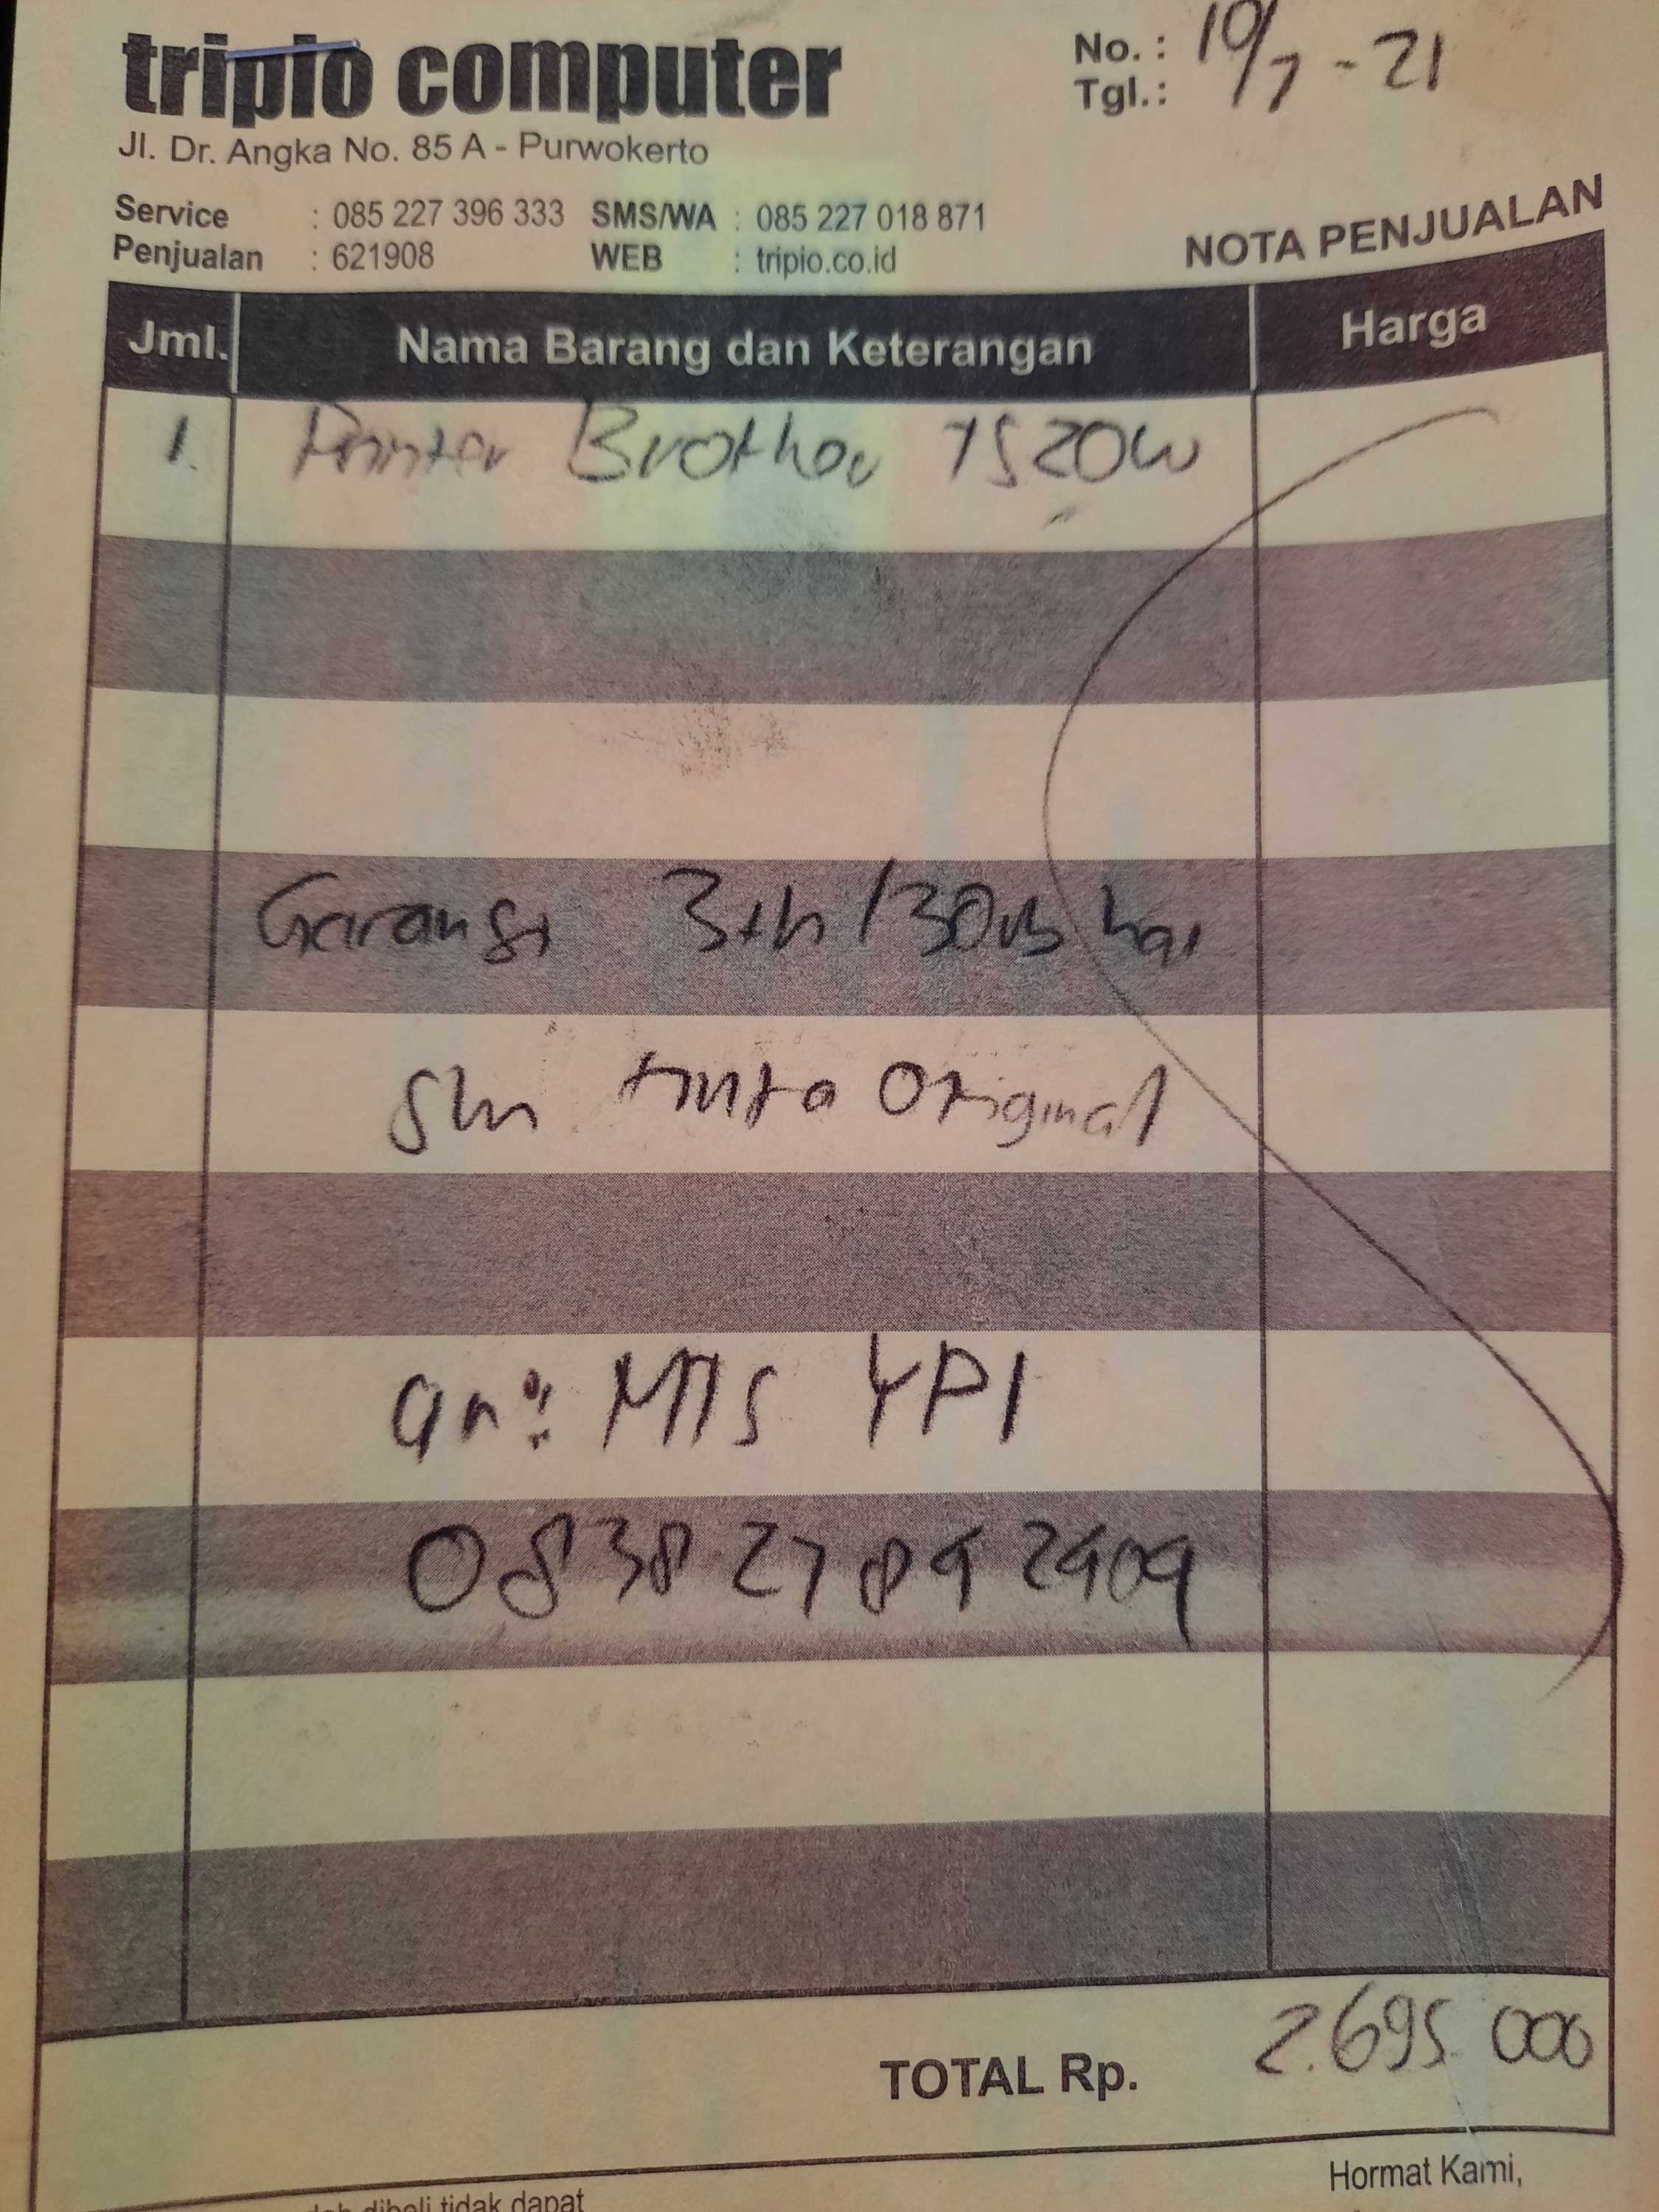 tripio computer
No. :
Tgl. : 10/7 - 21
Jl. Dr. Angka No. 85 A - Purwokerto
Service : 085 227 396 333 SMS/WA : 085 227 018 871
Penjualan : 621908 WEB : tripio.co.id
NOTA PENJUALAN
Jml. Nama Barang dan Keterangan Harga
1. Printer Brother T520W
Garansi 3th / 30rb hal
tinta Original
an: MTs YPI
0838 27 89 2909
TOTAL Rp. 2.695.000
Hormat Kami,
dibeli tidak dapat